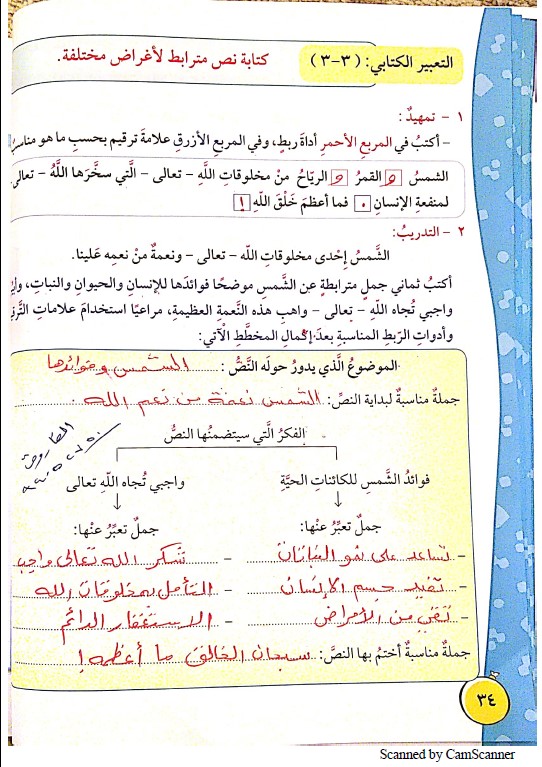 التعبير الكتابي: (٣-٣) كتابة نص مترابط لأغراض مختلفة.
١ - تمهيدٌ:
- أكتبُ في المربعِ الأحمرِ أداةَ ربطٍ، وفي المربعِ الأزرقِ علامةَ ترقيم بحسبِ ما هو مناسبٌ
الشمسُ و القمرُ و الرياحُ منْ مخلوقاتِ اللَّهِ - تعالى - الَّتي سخَّرَها اللَّهُ - تعالى
لمنفعةِ الإنسانِ . فما أعظمَ خَلْقَ اللَّهِ !
٢ - التدريبُ:
الشَّمسُ إحْدى مخلوقاتِ اللَّه - تعالى - ونعمةٌ منْ نعمِه عَلينا.
أكتبُ ثماني جملٍ مترابطةٍ عنِ الشَّمسِ موضحًا فوائدَها للإنسانِ والحيوانِ والنباتِ،
واجبي تُجاه اللَّهِ - تعالى - واهبِ هذه النَّعمةِ العظيمةِ، مراعيًا استخدامَ علاماتِ
وأدواتِ الرَّبطِ المناسبةِ بعدَ إكْمالِ المخطَّطِ الْآتي:
الموضوعُ الَّذي يدورُ حولَه النَّصُّ: الشمس وفوائدها
جملةٌ مناسبةٌ لبدايةِ النصِّ: الشمس نعمة من نعم الله.
الفكرُ الَّتي سيتضمنُها النصُّ
فوائدُ الشَّمسِ للكائناتِ الحيَّةِ
واجبي تُجاه اللَّهِ تعالى
جملٌ تعبِّرُ عنْها:
جملٌ تعبِّرُ عنْها:
- تساعد على نمو النباتات
- شكر الله تعالى واجب
- تفيد جسم الإنسان
- التأمل بمخلوقات الله
- تقي من الأمراض
- الاستغفار الدائم
جملةٌ مناسبةٌ أختمُ بها النصَّ: سبحان الخالق ما أعظمه !
٣٤
Scanned by CamScanner